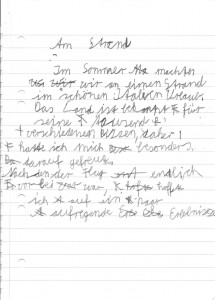 Am Strand
Im Sommer machten
wir an einen Strand
im schönen Italien Urlaub.
Das Land ist bekannt für
seine tausend
verschiedenen
hatte ich mich besonders
darauf gefreut.
Nach dem der Flug endlich
vorbei war, hoffte
ich auf ein paar
aufregende Erlebnisse